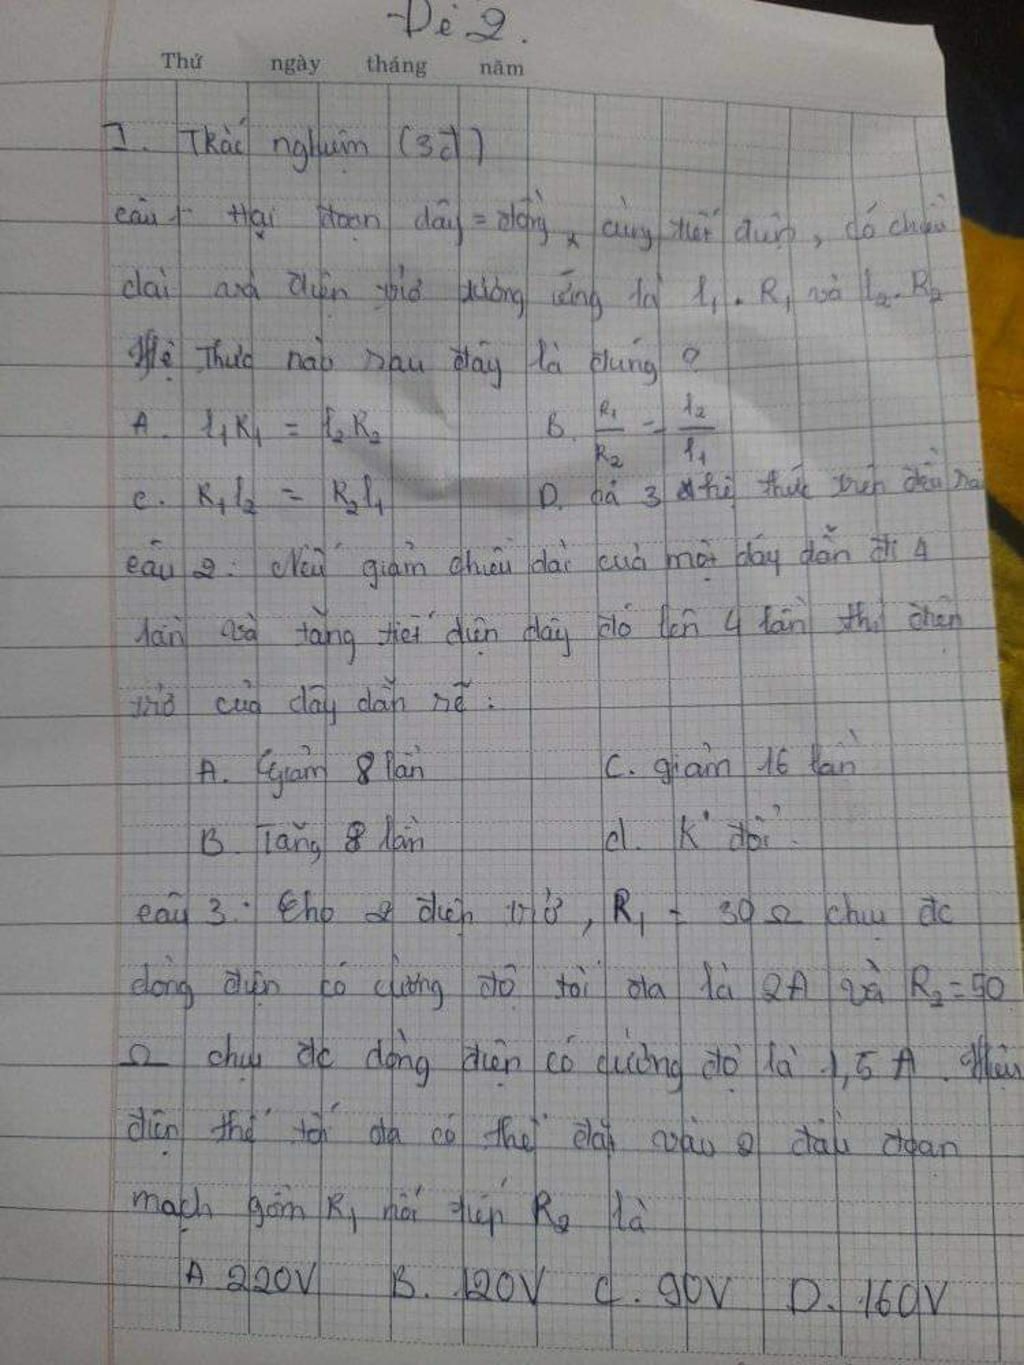 Đề 2.
Thứ ngày tháng năm
I. Trắc nghiệm (3đ)
câu 1 Hai đoạn dây = đồng, cùng tiết diện, có chiều
dài và điện trở tương ứng là l₁. R₁ và l₂. R₂
Hệ thức nào sau đây là đúng ?
A. l₁R₁ = l₂R₂ B. R₁/R₂ = l₂/l₁
C. R₁l₂ = R₂l₁ D. cả 3 hệ thức trên đều sai
câu 2: Nếu giảm chiều dài của một dây dẫn đi 4
lần và tăng tiết diện dây đó lên 4 lần thì điện
trở của dây dẫn sẽ :
A. Giảm 8 lần C. giảm 16 lần
B. Tăng 8 lần d. K° đổi.
câu 3. Cho 2 điện trở, R₁ = 30 Ω chịu đc
dòng điện có cường độ tối đa là 2A và R₂ = 50
Ω chịu đc dòng điện có cường độ là 1,5 A. Hiệu
điện thế tối đa có thể đặt vào 2 đầu đoạn
mạch gồm R₁ nối tiếp R₂ là
A 220V B. 120V C. 90V D. 160V